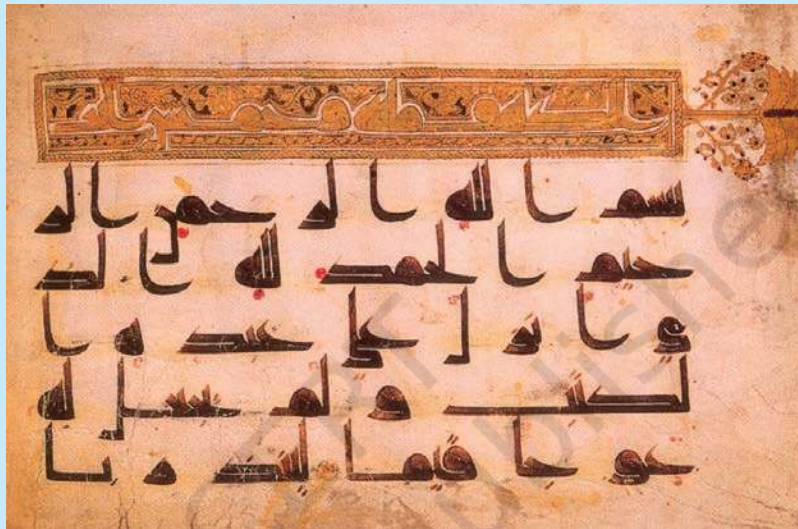 بسم الله الر حمن الر
حيم الحمد لله الذ
ى انزل على عبده ا
لكتب ولم يجعل له
عوجا قيما لينذر با